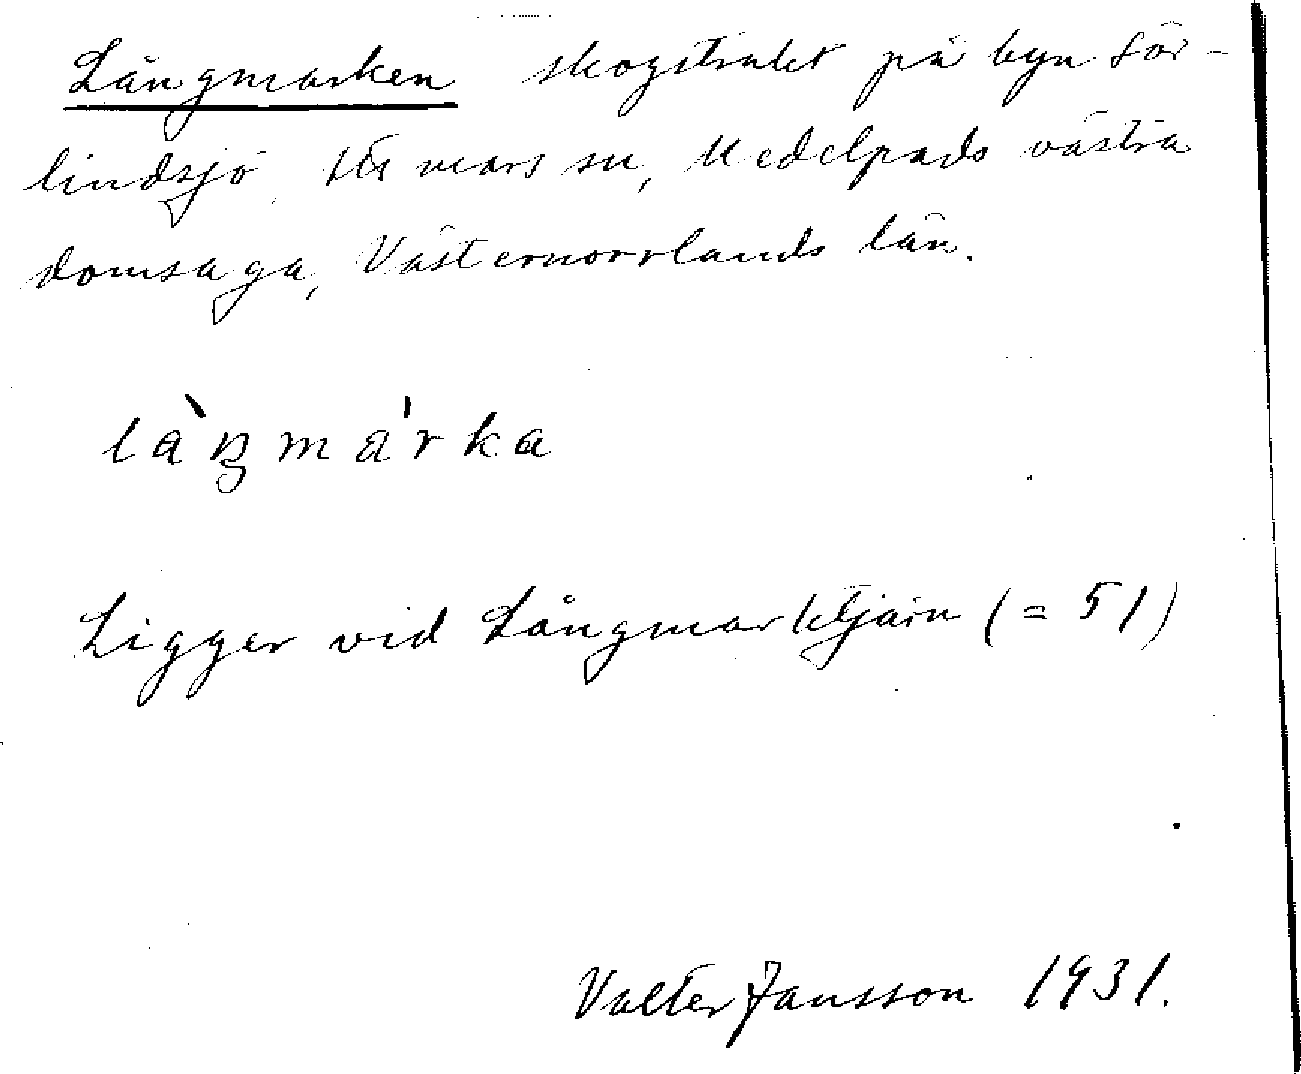 Långmarken skogstrakt på byn Sör-
lindsjö, Havers sn, Medelpads västra
domsaga, Västernorrlands län.
làŋmárka
Ligger vid Långmarktjärn (= 51)
Valter Jansson 1931.